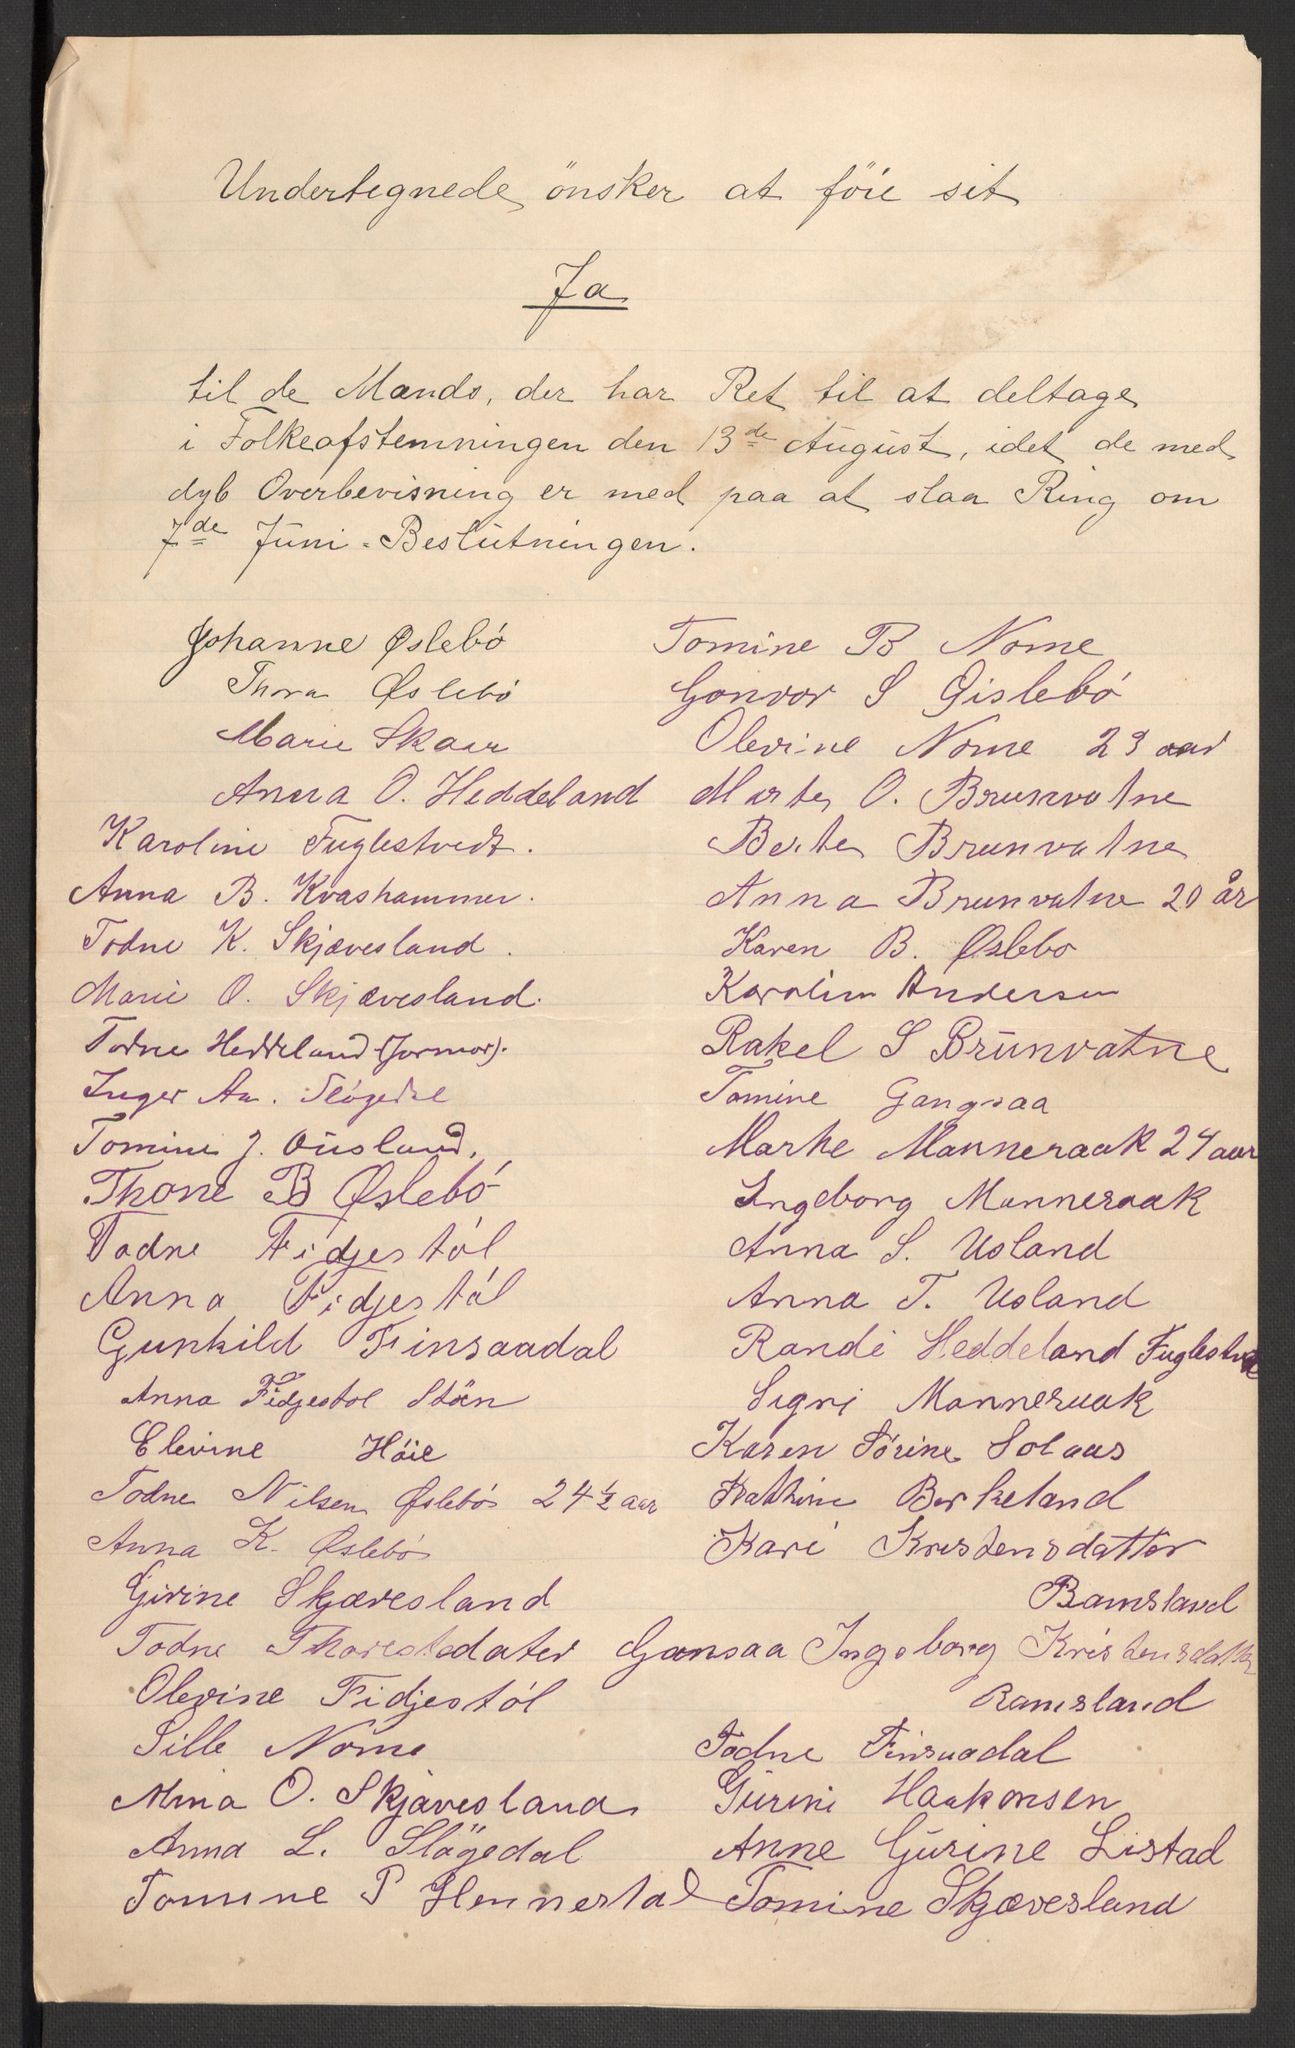 Undertegnede önsker at föie sit
Ja
til de Mænds, der har Ret til at deltage
i Folkeafstemningen den 13de August, idet de med
dyb Overbevisning er med paa at slaa Ring om
7de Juni-Beslutningen.
Johanne Øslebó
Thora Øslebó
Marie Skaar
Anna O. Heddeland
Karoline Fuglestvedt.
Anna B. Kvashammer.
Todne K. Skjævesland.
Marie O. Skjævesland.
Todne Heddeland (Jormor).
Inger An. Slögedal
Tomine J. Ousland.
Thone B Øslebó
Todne Fidjestól
Anna Fidjestól
Gunhild Finsaadal
Anna Fidjestol Stóen
Elevine Höie
Todne Nilsen Øslebó 24 ½ aar
Anna K. Øslebó
Girine Skjævesland
Todne Thorestedater Gansaa
Olevine Fidjestól
Sille Nome
Mina O. Skjævesland
Anna L. Slögedal
Tomine P Hennestal
Tomine B Nome
Gonvor S Øislebó
Olevine Nome 23 aar
Marte O. Brunvatne
Berte Brunvatne
Anna Brunvatne 20 år
Karen B. Øslebo
Karolin Andersen
Rakel S Brunvatne
Tomine Gangsaa
Marte Manneraak 24 aar
Ingeborg Manneraak
Anna S. Usland
Anna T. Usland
Randi Heddeland Fuglestve
Signi Manneraak
Karen Sórine Solaas
Kathine Berkeland
Kari Kristensdatter
Ramsland
Ingeborg Kristensdatter
Ramsland
Todne Finsaadal
Gurine Haakonsen
Anne Gurine Listad
Tomine Skjævesland